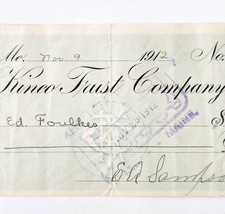 Me. Nov 9 1912 No.
Kineo Trust Company
Ed. Foulkes $
1912
MAINE.
E A Sampso